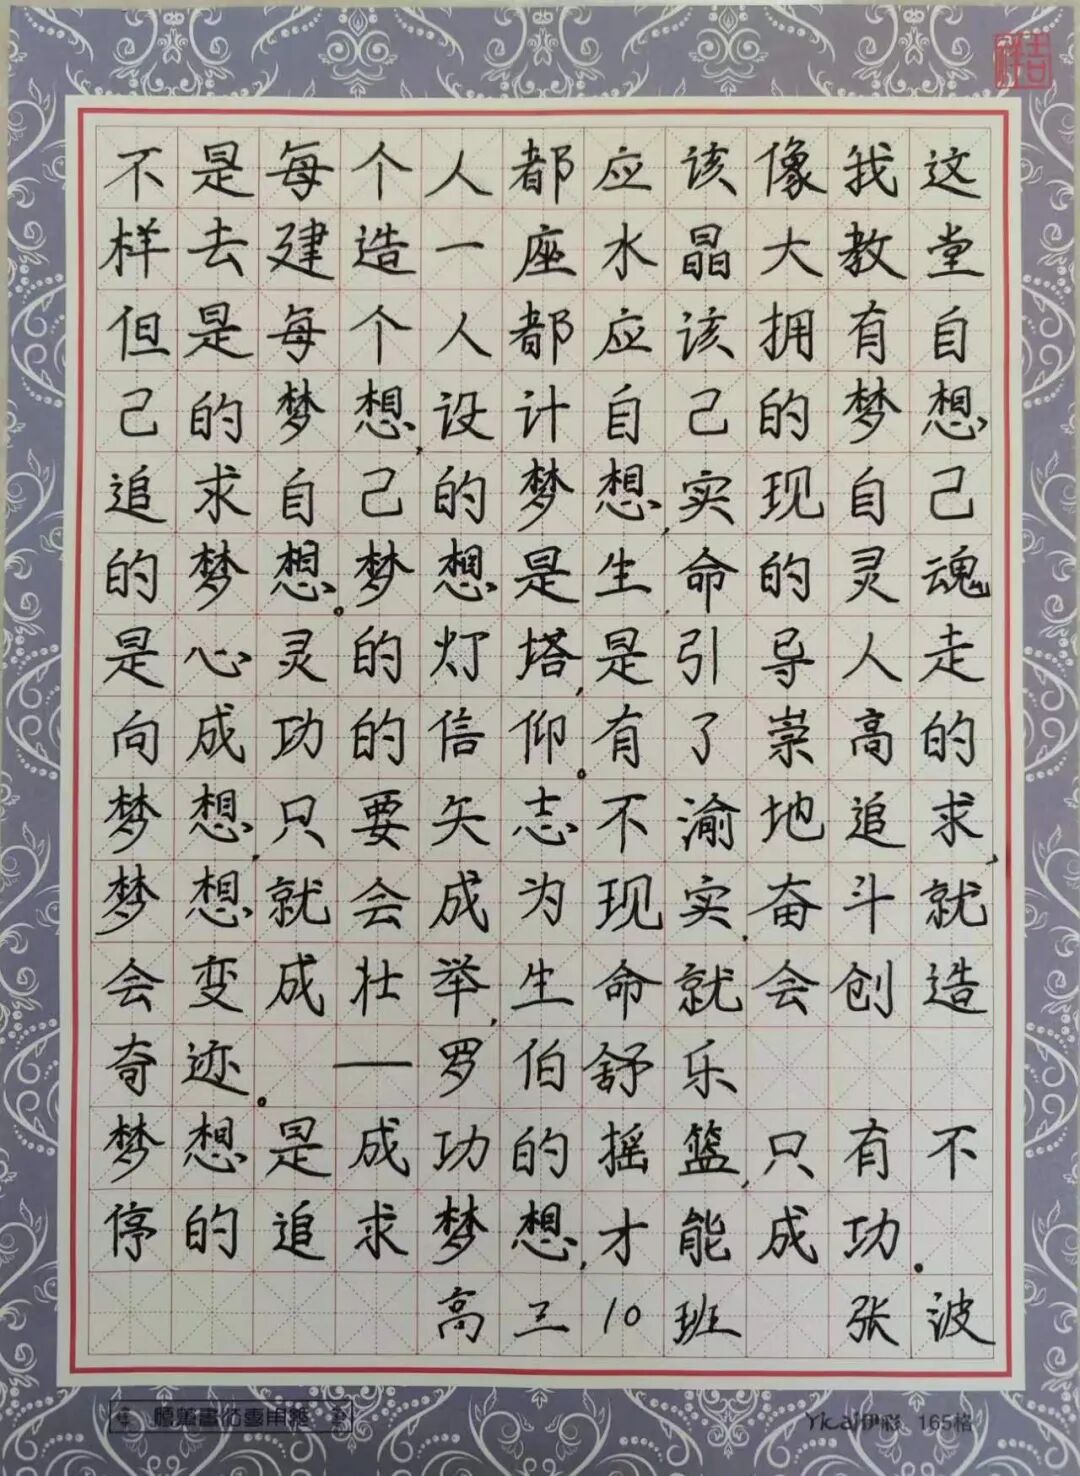 不是每个人都应该像我这
样去建造一座水晶大教堂
但是每个人都应该拥有自
己的梦想,设计自己的梦想
追求自己的梦想,实现自己
的梦想。梦想是生命的灵魂
是心灵的灯塔,是引导人走
向成功的信仰。有了崇高的
梦想,只要矢志不渝地追求,
梦想就会成为现实,奋斗就
会变成壮举,生命就会创造
奇迹。 —罗伯舒乐
梦想是成功的摇篮,只有不
停的追求梦想,才能成功.
高三10班 张波
Ykai伊彩 165格